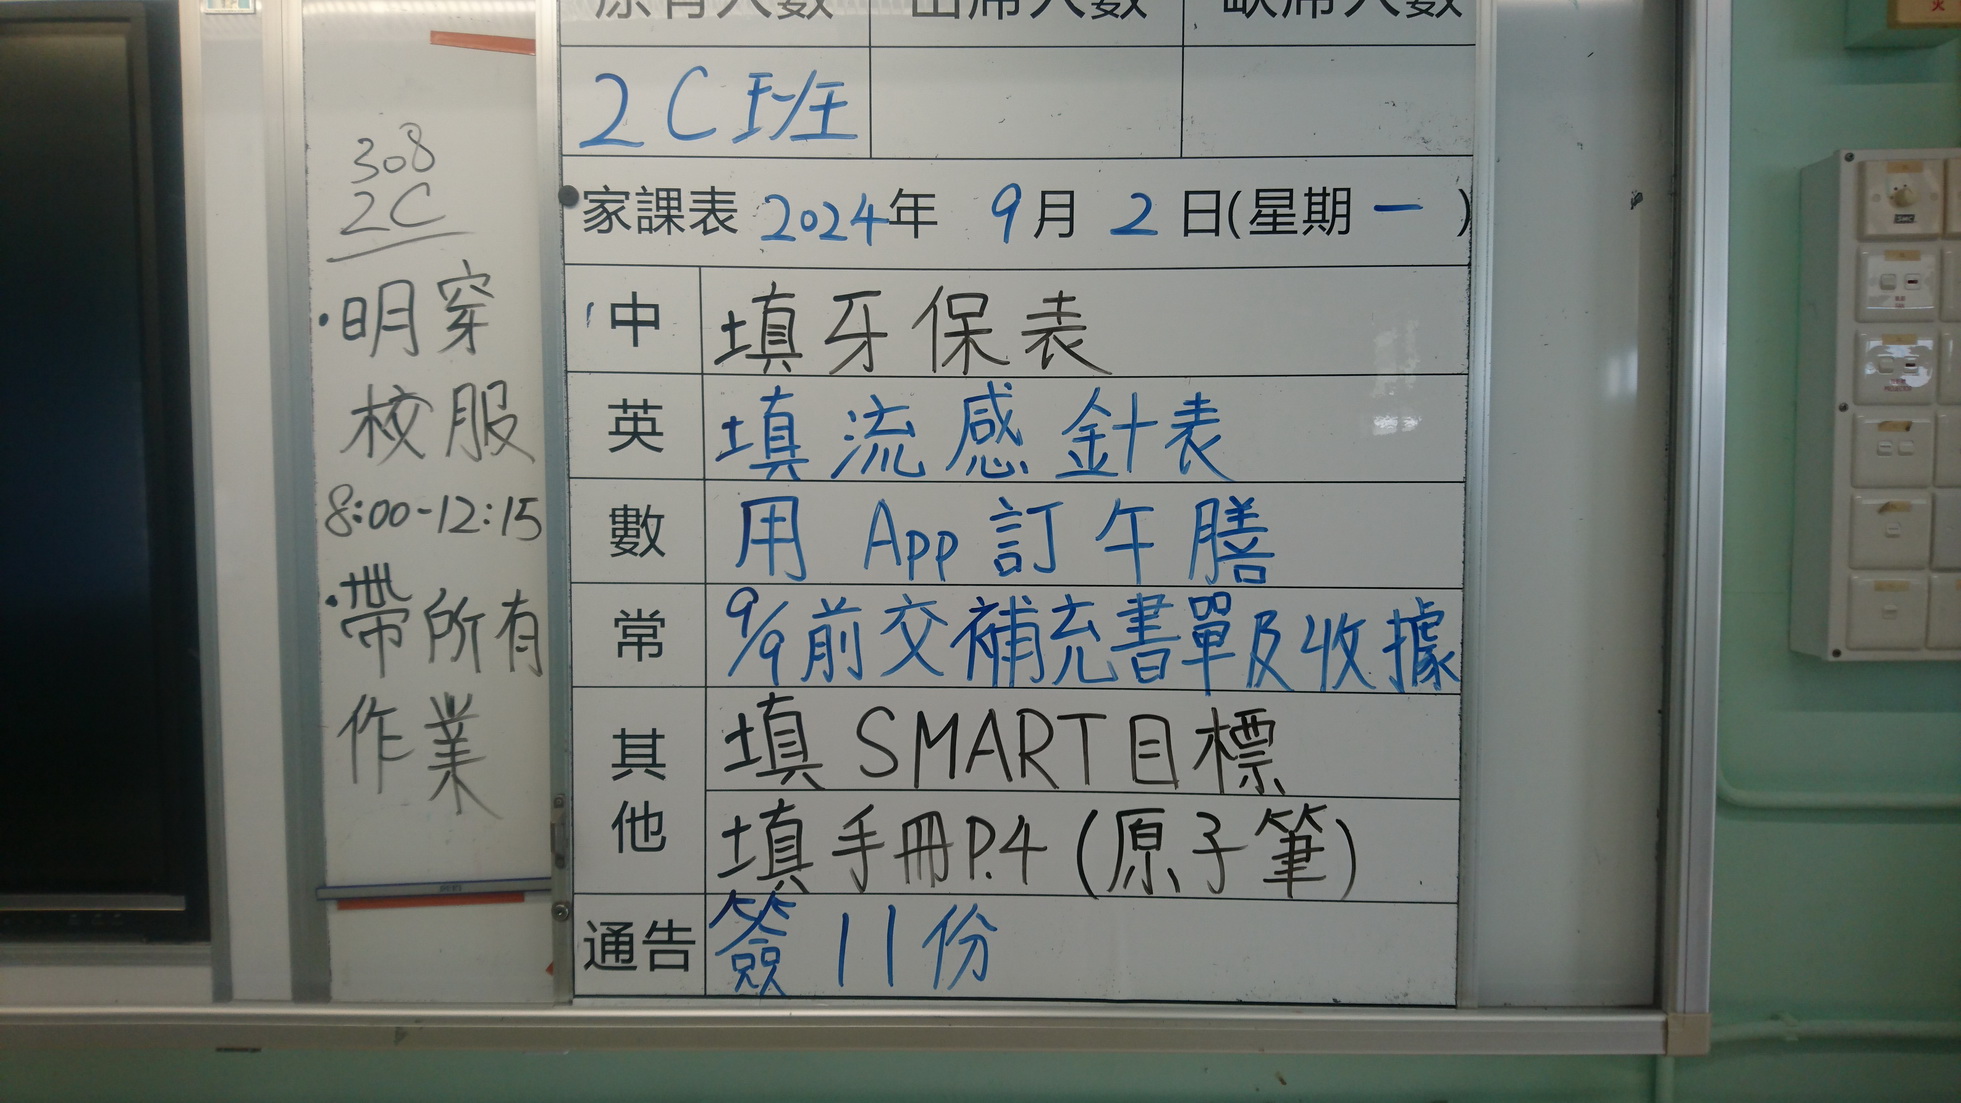 原有人數 出席人數 缺席人數
2C班
家課表 2024年 9月 2日(星期一 )
中 填牙保表
英 填流感針表
數 用 App 訂午膳
常 9/9前交補充書單及收據
其他 填 SMART目標
填手冊P.4 (原子筆)
通告 簽 11份
308
2C
·明穿
校服
8:00-12:15
·帶所有
作業